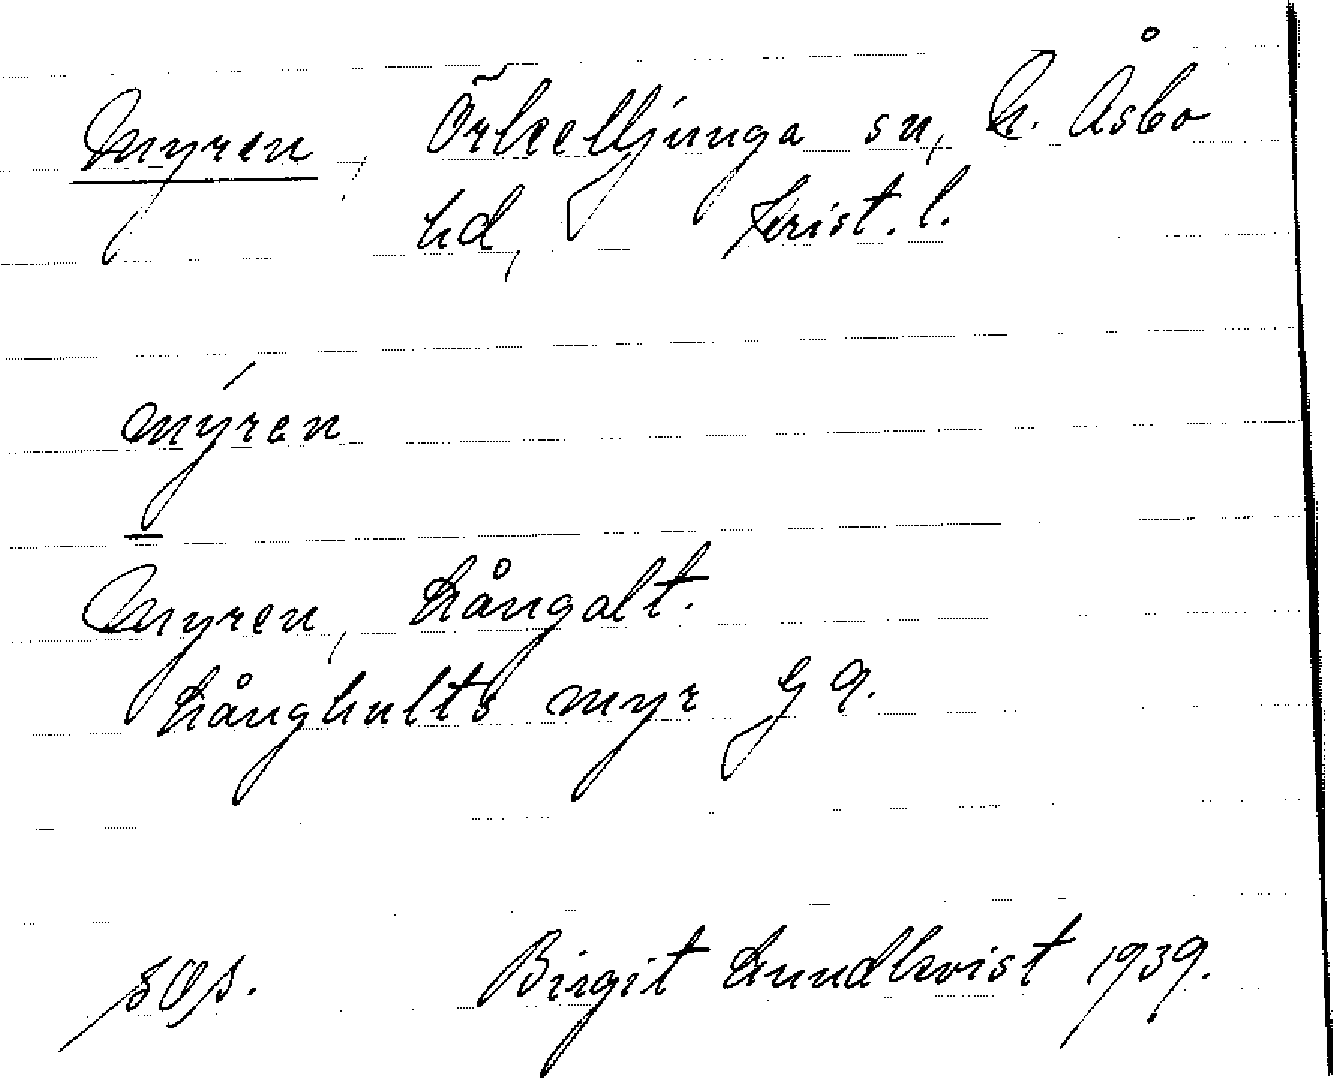 Myren, Örkelljunga sn, N. Åsbo
hd, Krist. l.
mýren
Myren, Långalt.
Långhults myr G 9.
SOS. Birgit Lundkvist 1939.